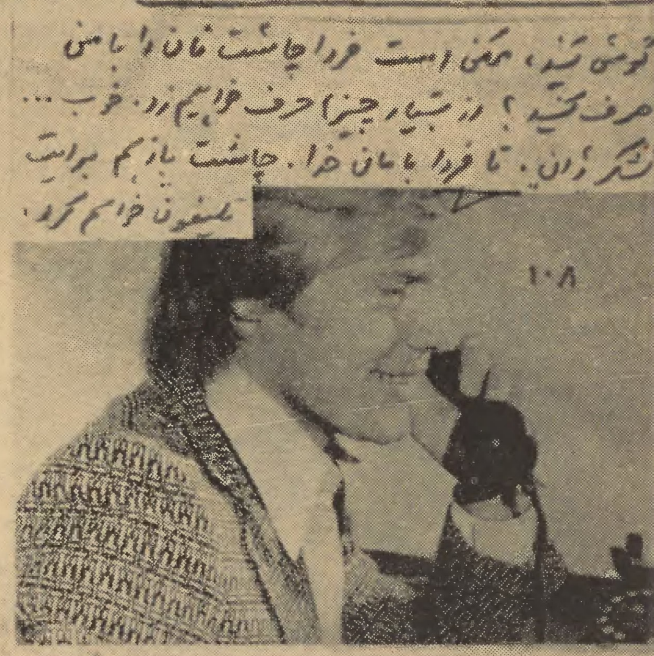 گوشی کنید، ممکن است فردا چاشت نان را با من
صرف کنید؟ از بسیار چیزها حرف خواهیم زد. خوب...
تشکر ژان. تا فردا بامان خدا. چاشت باز هم برایت
تلیفون خواهم کرد.
۱۰۸